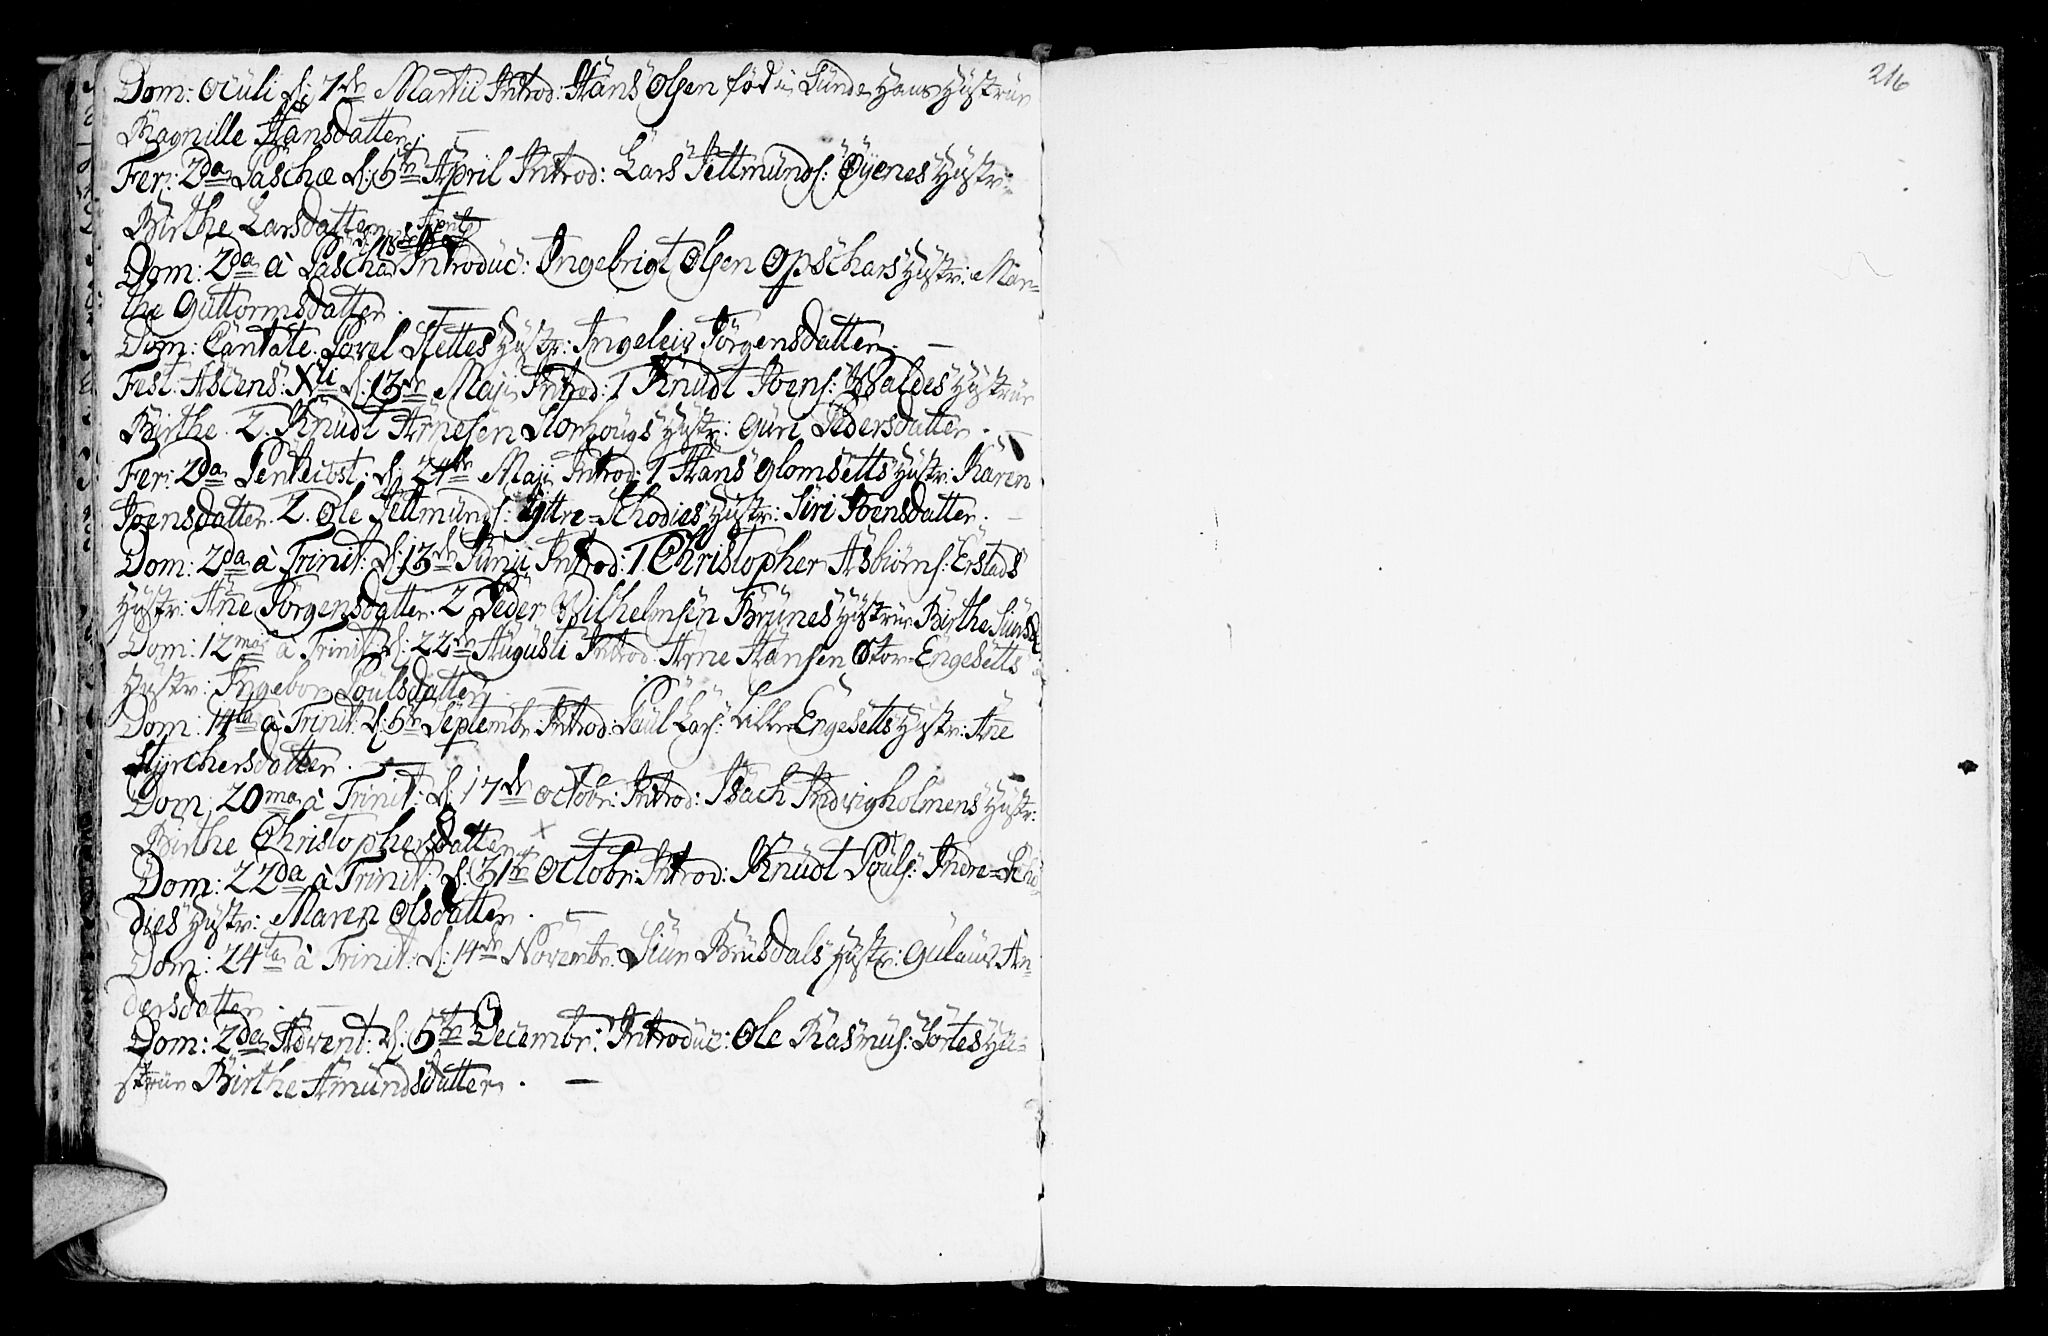 Dom: Oculi d: 7de Martii Introd: Hans Olsen fød i Sunde hans Hustrüe
Ragnille Hansdatter. —
Fer: 2da Paschæ d: 5te April Introd: Lars Pettmunds: Øyenes Hustr:
Birthe Larsdatter
d: 18de April
Dom: 2da à Pascha Introduc: Ingebrigt Olsen Opschars Hustr: Mar=
the Guttormsdatter. —
Dom: Cantate Povel Slettes Hustr: Ingeleiv Jörgensdatter. —
Fest: Ascens: Xti d: 13de Maji Introd: 1 Knudt Ivers: Waldes Hustrüe
Birthe. 2. Knudt Arnesen Storhougs Hustr: Guri Pedersdatter. —
Fer: 2da Pentecost: d: 24de Maji Introd: 1 Hans Glomsetts Hustr: Karen
Iversdatter. 2. Ole Pettmunds: Yttre=Schodies Hustr: Siri Iversdatter. —
Dom: 2da à Trinit: d: 13de Junii Introd: 1 Christopher Askiöns: Erstads
Hustr: Ane Jörgensdatter. 2 Peder Wilhelmsen Brunes Hustrüe Birthe Siursd:
Dom: 12ma à Trinit: d: 22de Augusti Introd: Arne Hansen Stor=Engesetts
Hustr: Ingebor Poulsdatter. —
Dom: 14ta à Trinit: d: 5te Septembr: Introd: Paul Lars: Lille Engesets Hustr: Ane
Styrchersdatter. —
Dom: 20ma à Trinit: d: 17de Octobr: Introd: Isach Indvigholmens Hustr:
Birthe Christophersdatter. ×
Dom: 22da à Trinit: d: 31te Octobr: Introd: Knudt Pouls: Indre=Scho=
dies Hustr: Maren Olsdatter. —
Dom: 24ta à Trinit: d: 14de Novembr: Siur Brusdals Hustr: Gulaug An=
dersdatter. —
Dom: 2da Advent: d: 5te Decembr: Introduc: Ole Rasmus: Sortes Hu=
strüe Birthe Amundsdatter. —
216